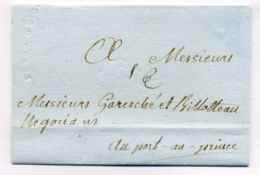 A Messieurs
Messieurs Garesché et Billoteau
Negocians
au port-au-prince